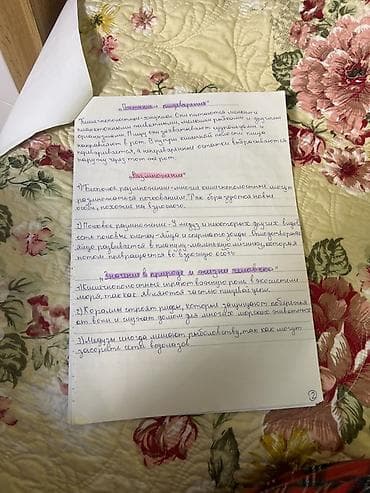 „Питание и пищеварение"
Кишечнополостные-хищники. Они питаются мелкими
планктонными животными, мелкими рыбками и другими
организмами. Пищу они захватывают щупальцами и
направляют в рот. Внутри кишечной полости пища
переваривается, а непереваренные остатки выбрасываются
наружу через тот же рот.
„Размножение"
1) Бесполое размножение-многие кишечнополостные могут
размножаться почкованием. Так образуются новые
особи, похожие на взрослого.
2) Половое размножение-У медуз и некоторых других видов
есть половые клетки-яйца и сперматозоиды. Оплодотворённое
яйцо развивается в планулу-маленькую личинку, которая
потом превращается во взрослую особь
„Значение в природе и жизни человека"
1) Кишечнополостные играют важную роль в экосистеме
моря, так как являются частью пищевой цепи.
2) Кораллы строят рифы, которые защищают побережья
от волн и служат домом для многих морских животных
3) Медузы иногда мешают рыболовству, так как могут
засорять сети водолазов
2